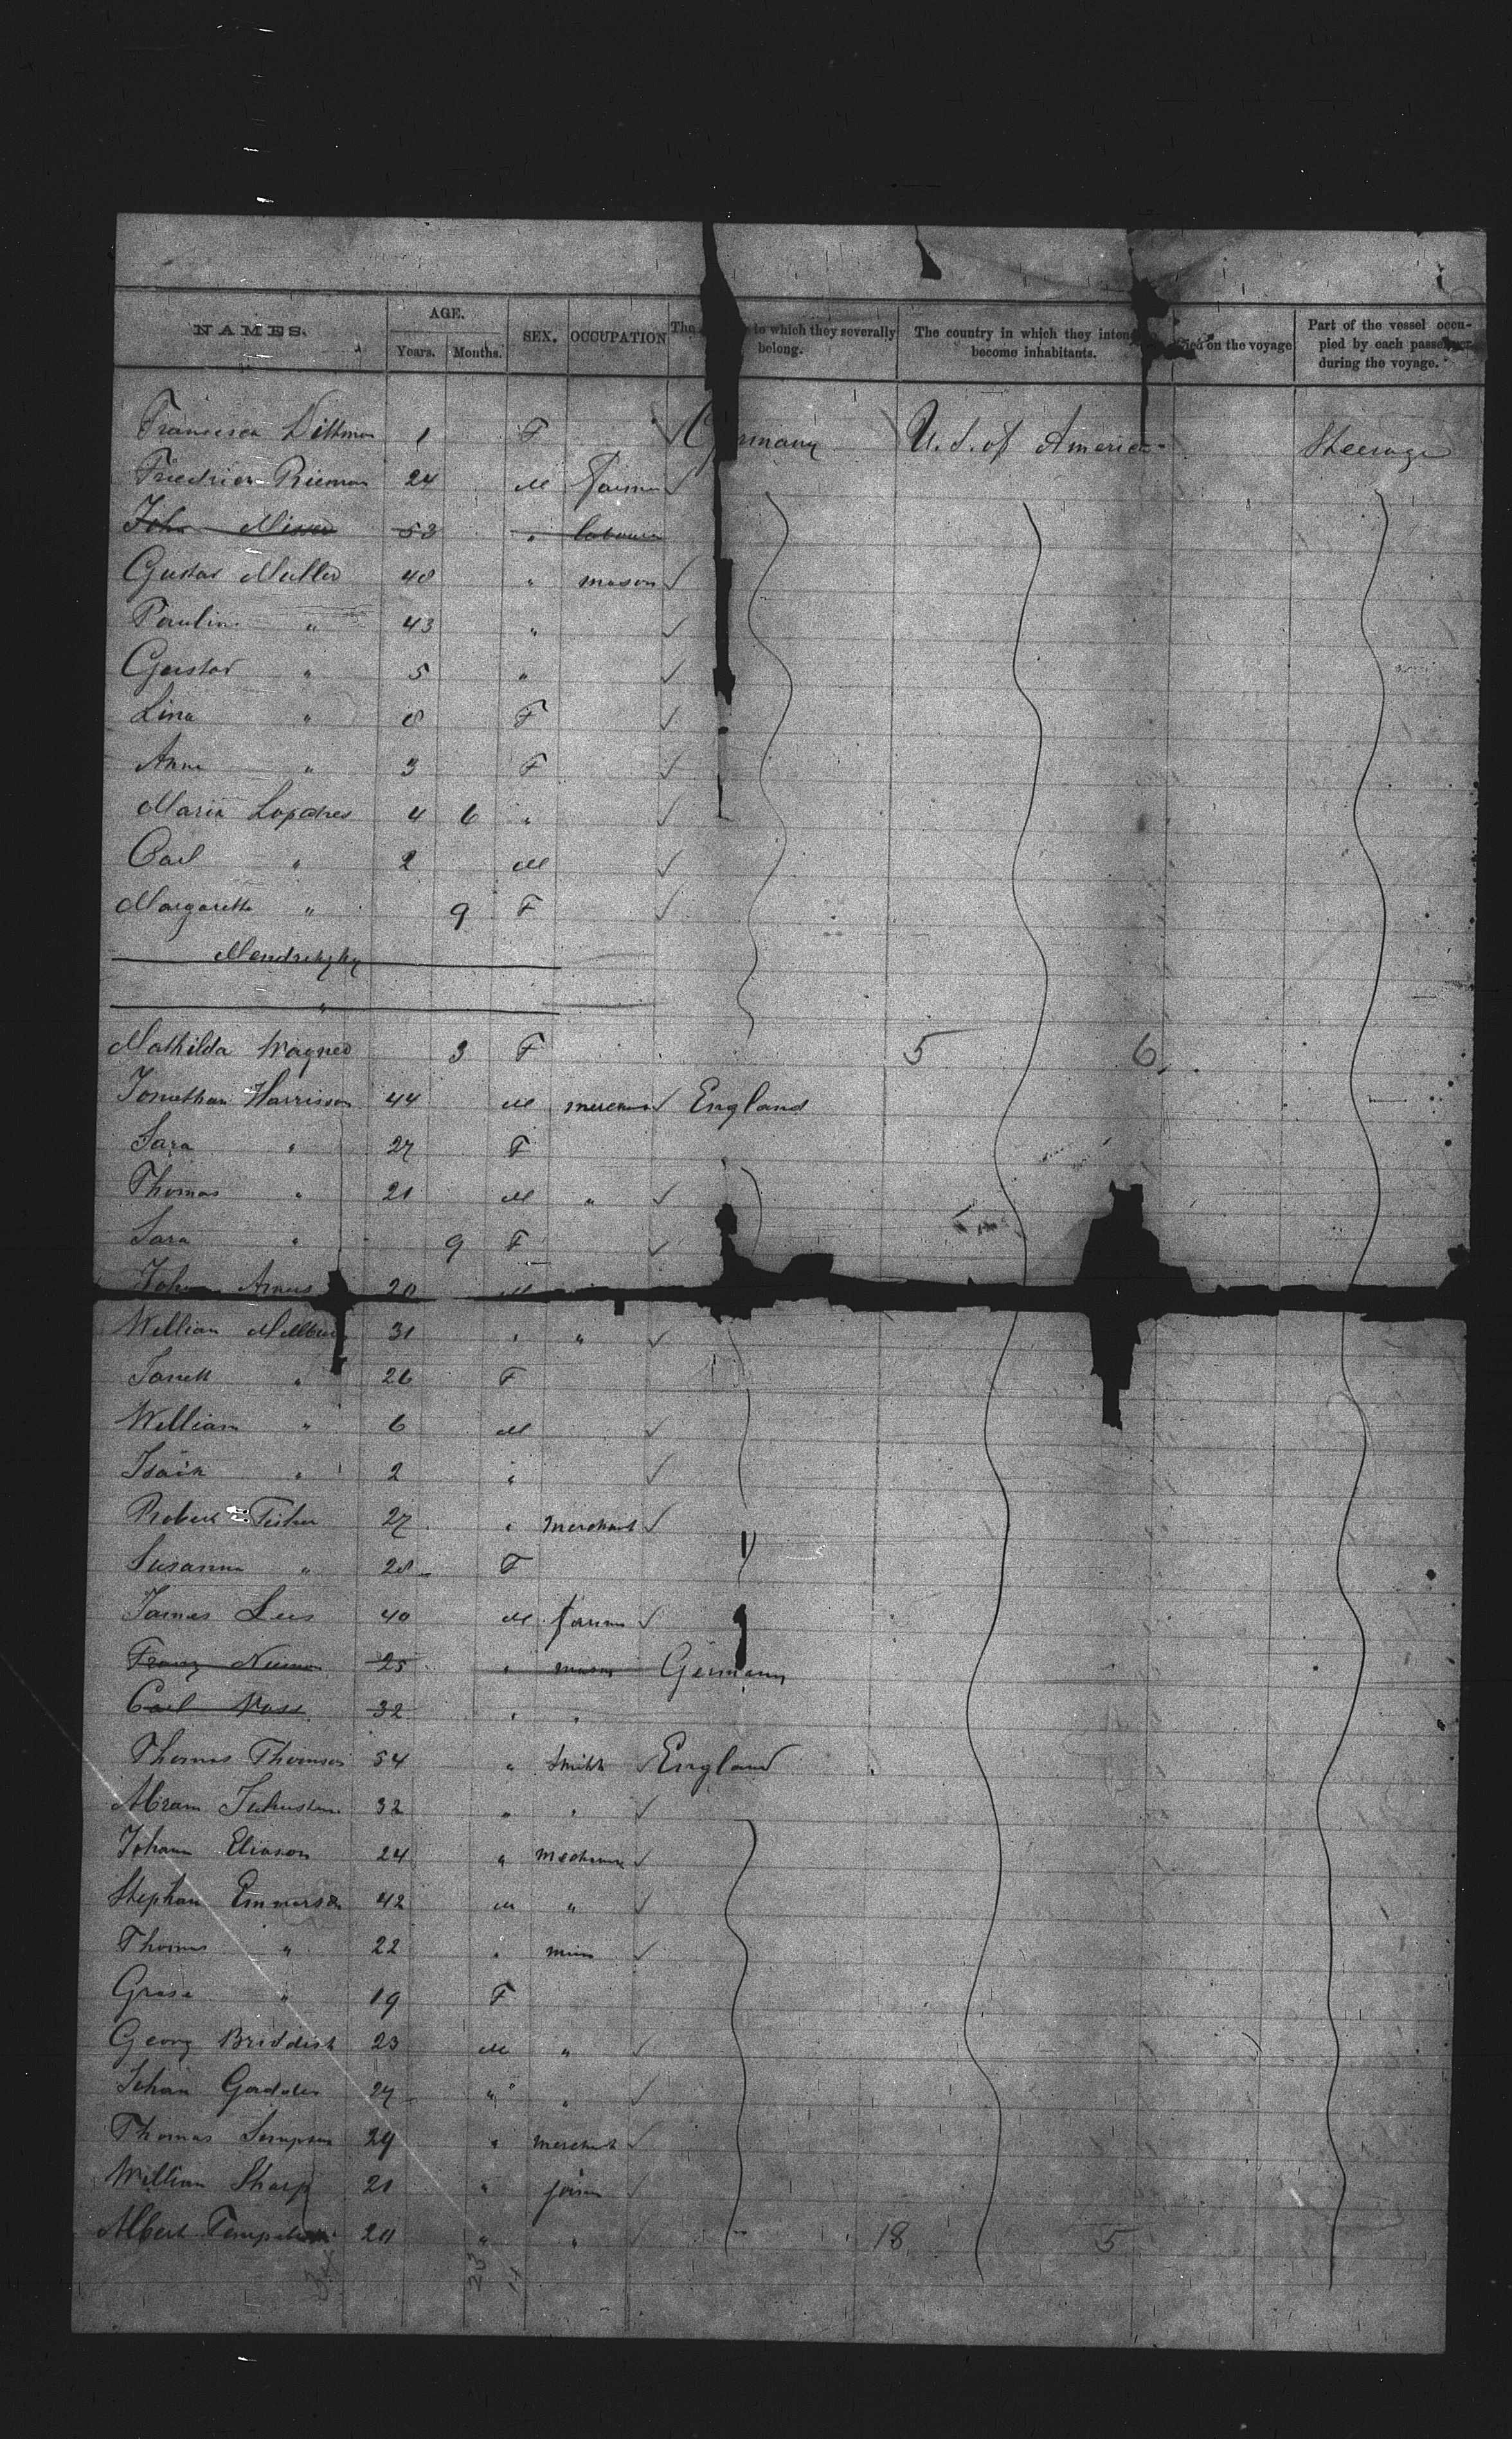 NAMES. AGE. Years. Months. SEX. OCCUPATION The to which they severally belong. The country in which they intend become inhabitants. on the voyage Part of the vessel occupied by each passenger during the voyage.
Francisca Dittman 1 F Germany U. S. of America Steerage
Friedrich Rieman 24 M Farmer
John 53 " labourer
Gustav Muller 48 " mason
Paulin " 43 "
Gustav " 5 "
Lina " 8 F
Anna " 3 F
Maria 4 6 "
Carl " 2 M
Margaretha " 9 F
"
Mathilda Wagner 3 F 5 6
Jonathan Harrison 44 M England
Sara " 27 F
Thomas " 21 M "
Sara " 9 F
John 20 M
William 31 " "
Janett " 26 F
William " 6 M
Isaik " 2 "
Robert 27 " merchant
Susanna " 28 F
James Lees 40 M farmer
Franz 25 " mason Germany
Carl 32 " "
Thomas Thomson 54 " Smith England
Abram 32 " "
Johann Eliason 24 " mechanic
Stephan Emmerson 42 M "
Thomas " 22 "
Grase " 19 F
Georg Briddish 23 M "
Johan 27 " "
Thomas Sempson 29 " merchant
William Sharp 21 "
Albert 20 " " 18 5